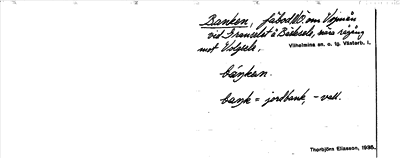 Banken, fäbod NO om Vojmån
vid Granselet å Bäcksele, nära rågång
mot Volgsele.
Vilhelmina sn. o. tg. Västerb. l.
báŋkan.
baŋk = jordbank, -vall.
Thorbjörn Eliasson, 1935.